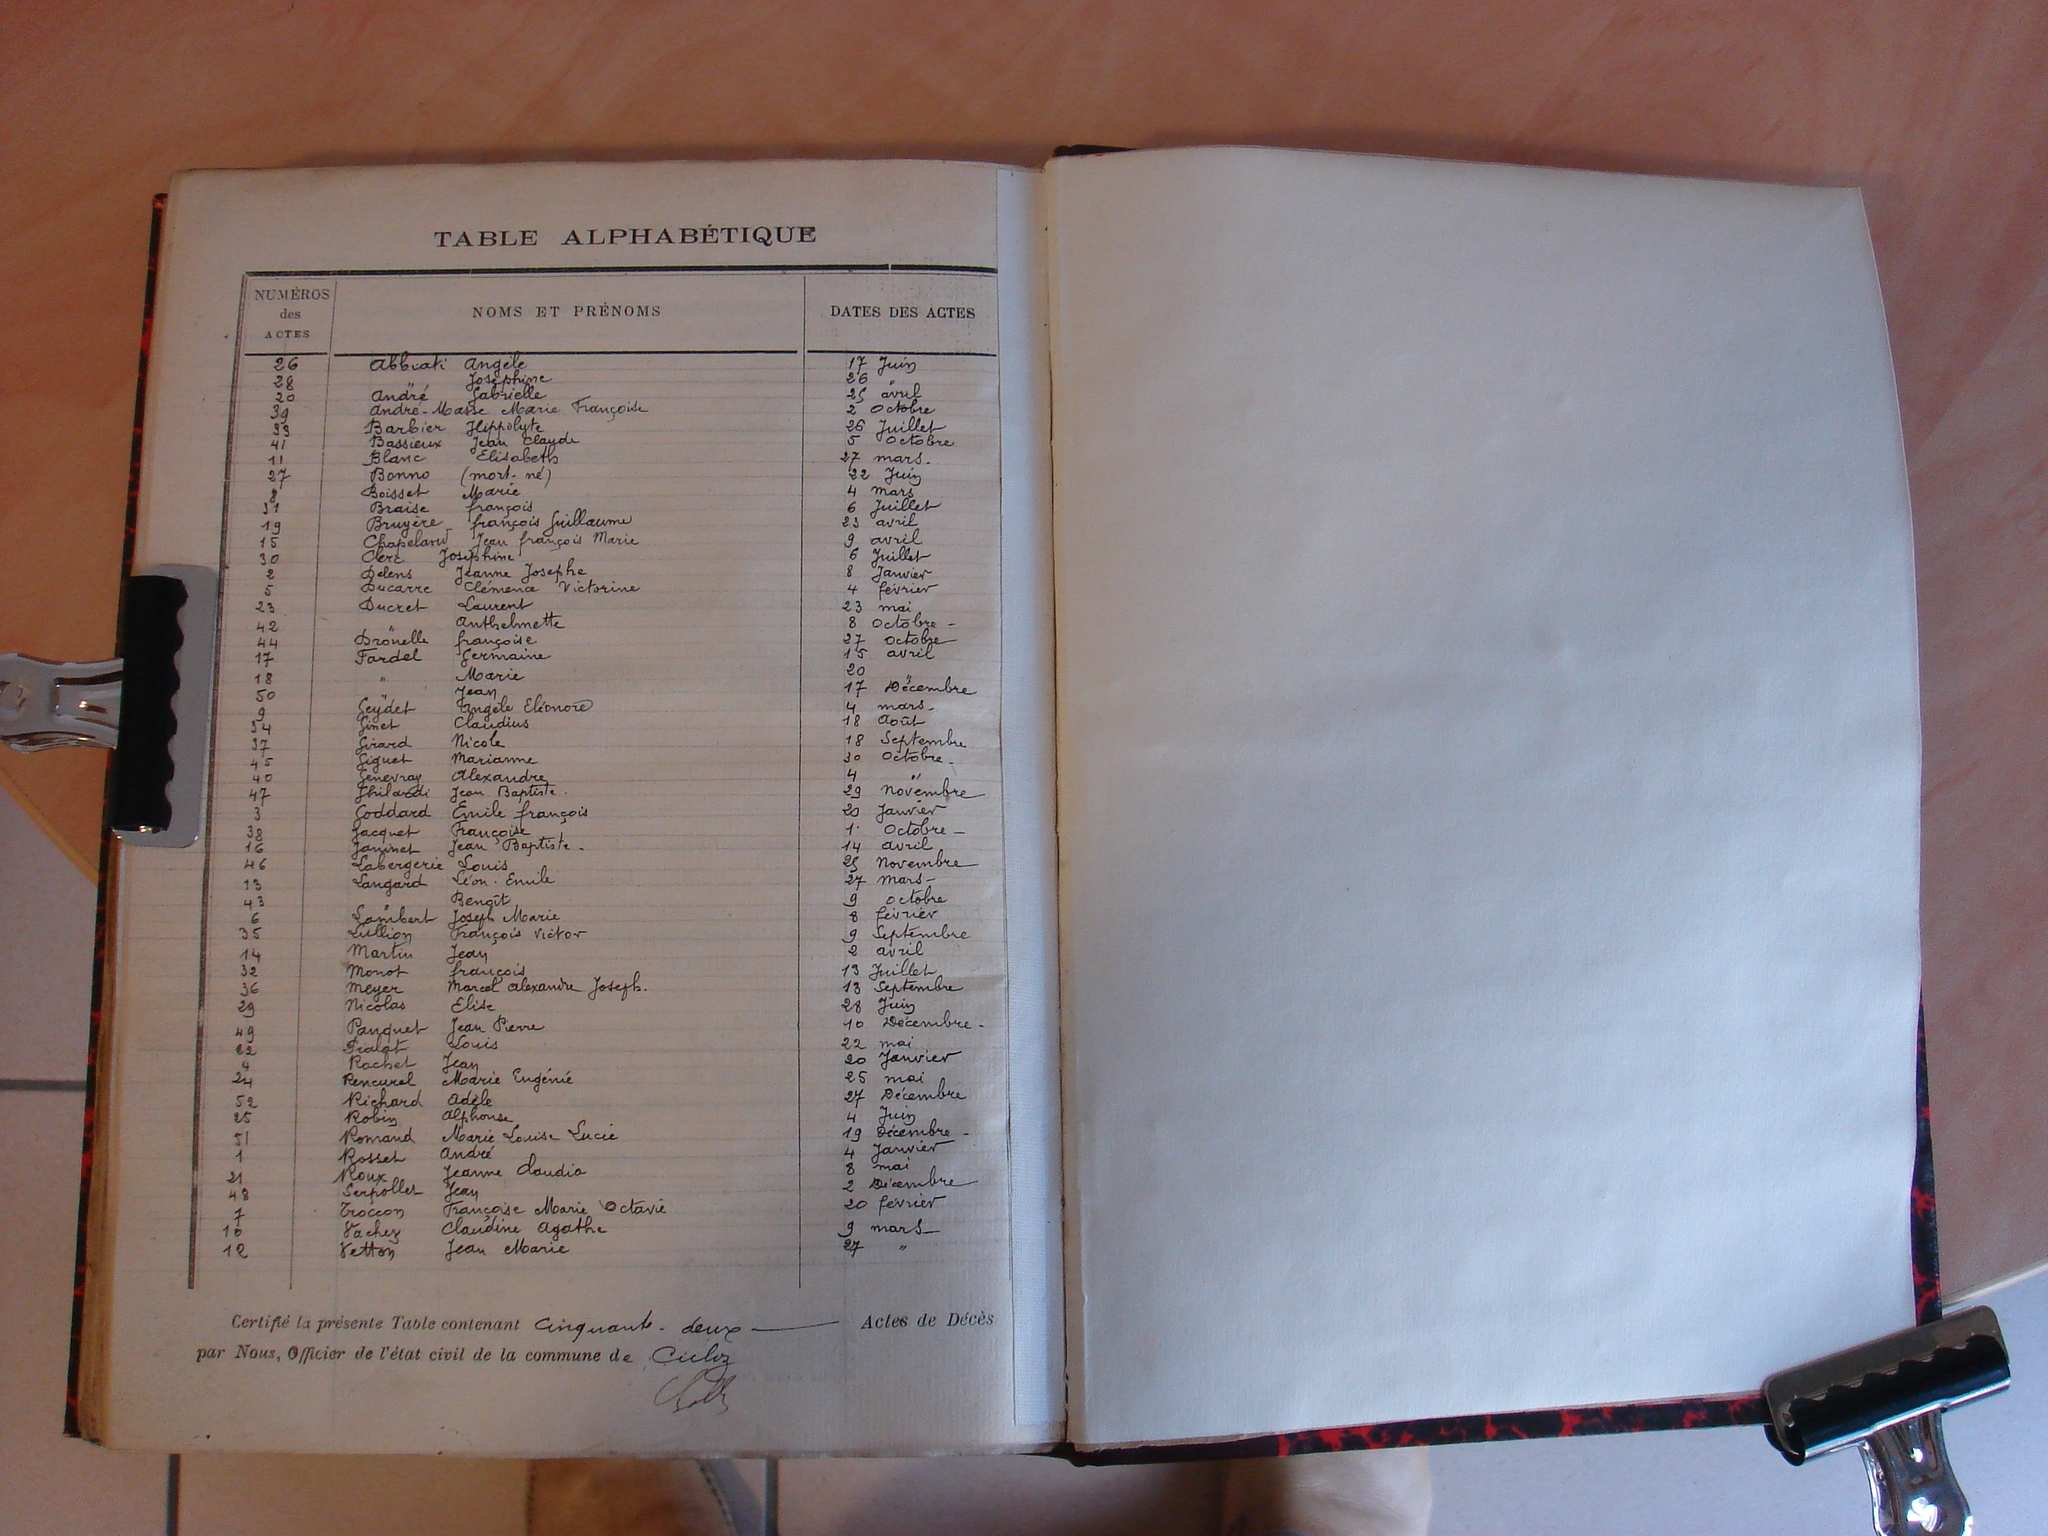 TABLE ALPHABÉTIQUE
NUMÉROS des ACTES NOMS ET PRÉNOMS DATES DES ACTES
26 Abbiati Angèle 17 Juin
28 " Joséphine 26 "
20 André Gabrielle 25 avril
39 André-Masse Marie Françoise 2 Octobre
33 Barbier Hippolyte 26 Juillet
41 Bassieux Jean Claude 5 Octobre
11 Blanc Elisabeth 27 mars
27 Bonno (mort-né) 22 Juin
8 Boisset Marie 4 mars
31 Braise françois 6 Juillet
19 Bruyère françois Guillaume 23 avril
15 Chapeland Jean françois Marie 9 avril
30 Clerc Joséphine 6 Juillet
2 Delens Jeanne Josephe 8 Janvier
5 Ducarre Clémence Victorine 4 février
23 Ducret Laurent 23 mai
42 " Anthelmette 8 Octobre
44 Drouelle françoise 27 octobre
17 Fardel Germaine 15 avril
18 " Marie 20 "
50 " Jean 17 Décembre
9 Geydet Angèle Eléonore 4 mars
34 Ginet Claudius 18 Août
37 Girard Nicole 18 Septembre
45 Giguet Marianne 30 Octobre
40 Genevray Alexandre 4 "
47 Ghilardi Jean Baptiste 29 Novembre
3 Goddard Emile françois 20 Janvier
38 Jacquet Françoise 1 Octobre
16 Janinet Jean Baptiste 14 avril
46 Labergerie Louis 25 Novembre
13 Langard Léon-Emile 27 mars
43 " Benoît 9 octobre
6 Lambert Joseph Marie 8 février
35 Lullion François Victor 9 Septembre
14 Martin Jean 2 avril
32 Monot françois 13 Juillet
36 Meyer Marcel alexandre Joseph. 13 Septembre
29 Nicolas Elise 28 Juin
49 Panquet Jean Pierre 10 Décembre
22 Pialat Louis 22 mai
4 Rochet Jean 20 Janvier
24 Rencurel Marie Eugénie 25 mai
52 Richard Adèle 27 Décembre
25 Robin Alphonse 4 Juin
51 Romand Marie Louise Lucie 19 Décembre
1 Rosset André 4 Janvier
21 Roux Jeanne Claudia 8 mai
48 Serpollet Jean 2 Décembre
7 Troccon Françoise Marie Octavie 20 février
10 Vachez Claudine Agathe 9 mars
12 Vetton Jean Marie 27 "
Certifié la présente Table contenant Cinquante-deux Actes de Décès
par Nous, Officier de l'état civil de la commune de Culoz